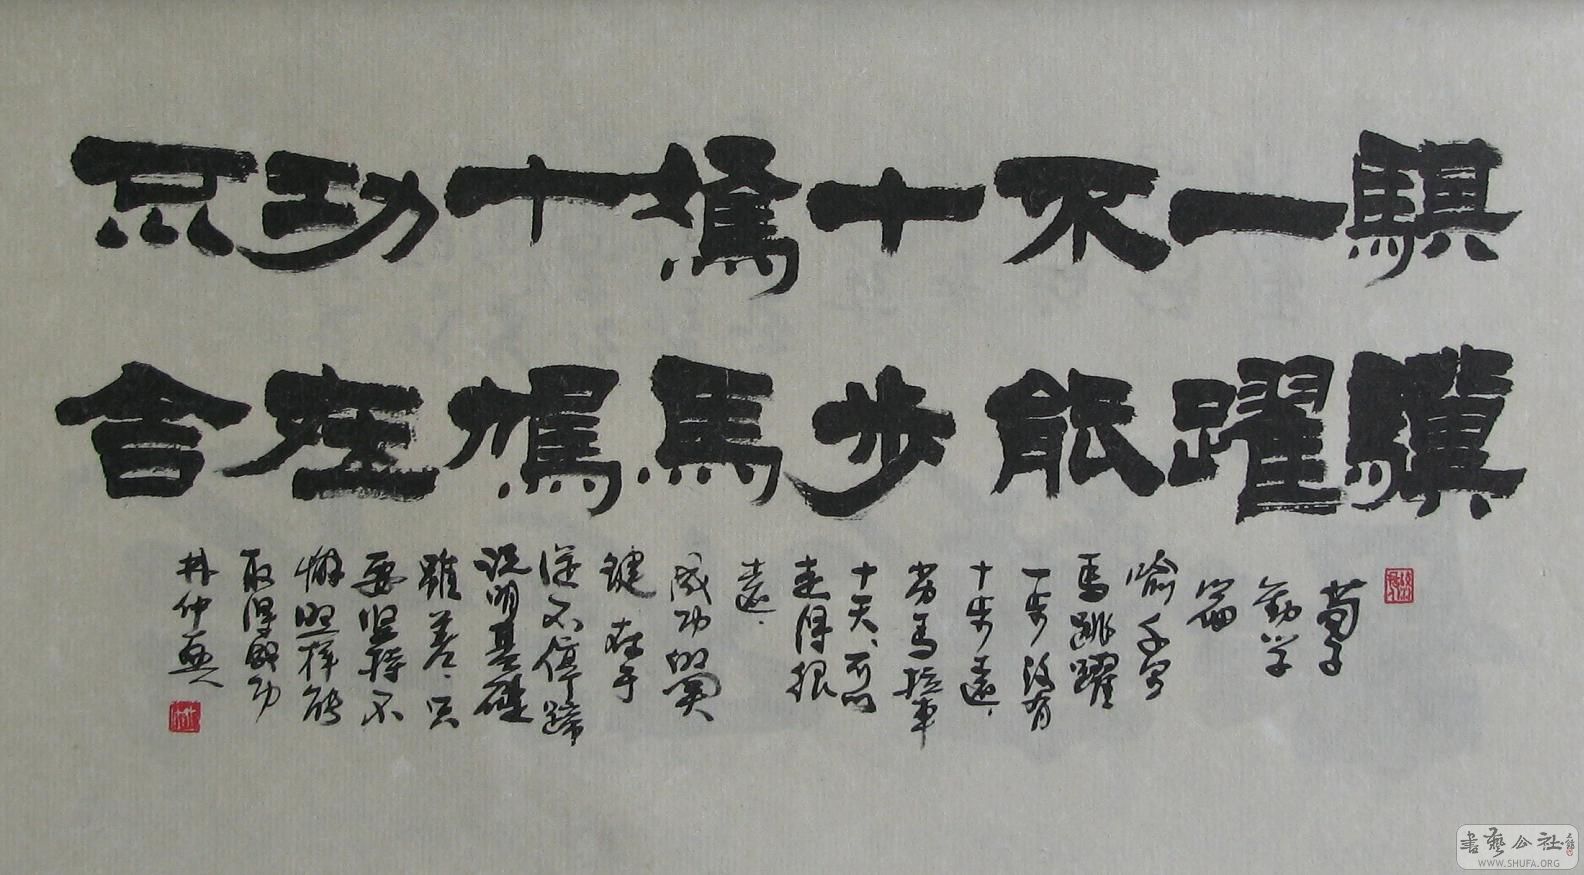 騏驥
一躍
不能
十步
駑馬
十駕
功在
不舍
荀子
勸学
篇
喻千里
馬跳躍
一步没有
十步遠，
劣馬拉車
十天，可以
走得很
遠，
成功的関
键在于
從不停蹄
説明基礎
雖差，只
要坚持不
懈照樣能
取得成功
林仲興
書藝公社
WWW.SHUFA.ORG